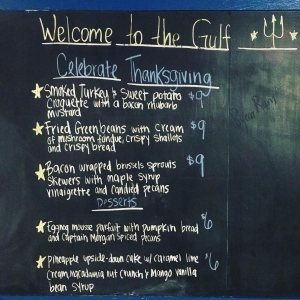 Welcome to the Gulf
Celebrate Thanksgiving
Smoked Turkey & Sweet potato $9
Croquette with a bacon rhubarb
mustard
Fried Greenbeans with cream $9
of mushroom fondue, crispy shallots
and crispy bread
Bacon wrapped brussels sprouts $9
Skewers with maple syrup
vinaigrette and candied pecans
Desserts
Eggnog mousse parfait with pumpkin bread $6
and Captain Morgan Spiced pecans
Pineapple upside-down cake w/ caramel lime $6
cream, macadamia nut crunch & Mango vanilla
bean syrup